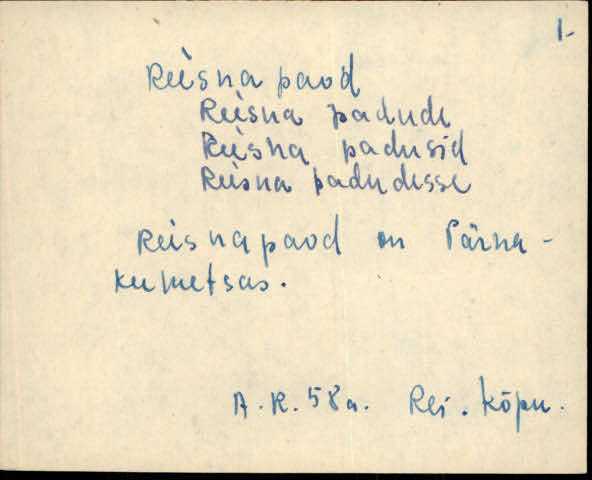 1-
Reisna paod
Reisna padude
Reisna padusid
Reisna padudesse
Reisna paod on Pärna-
ku metsas.
A.R. 58 a. Rei. Kõpu.